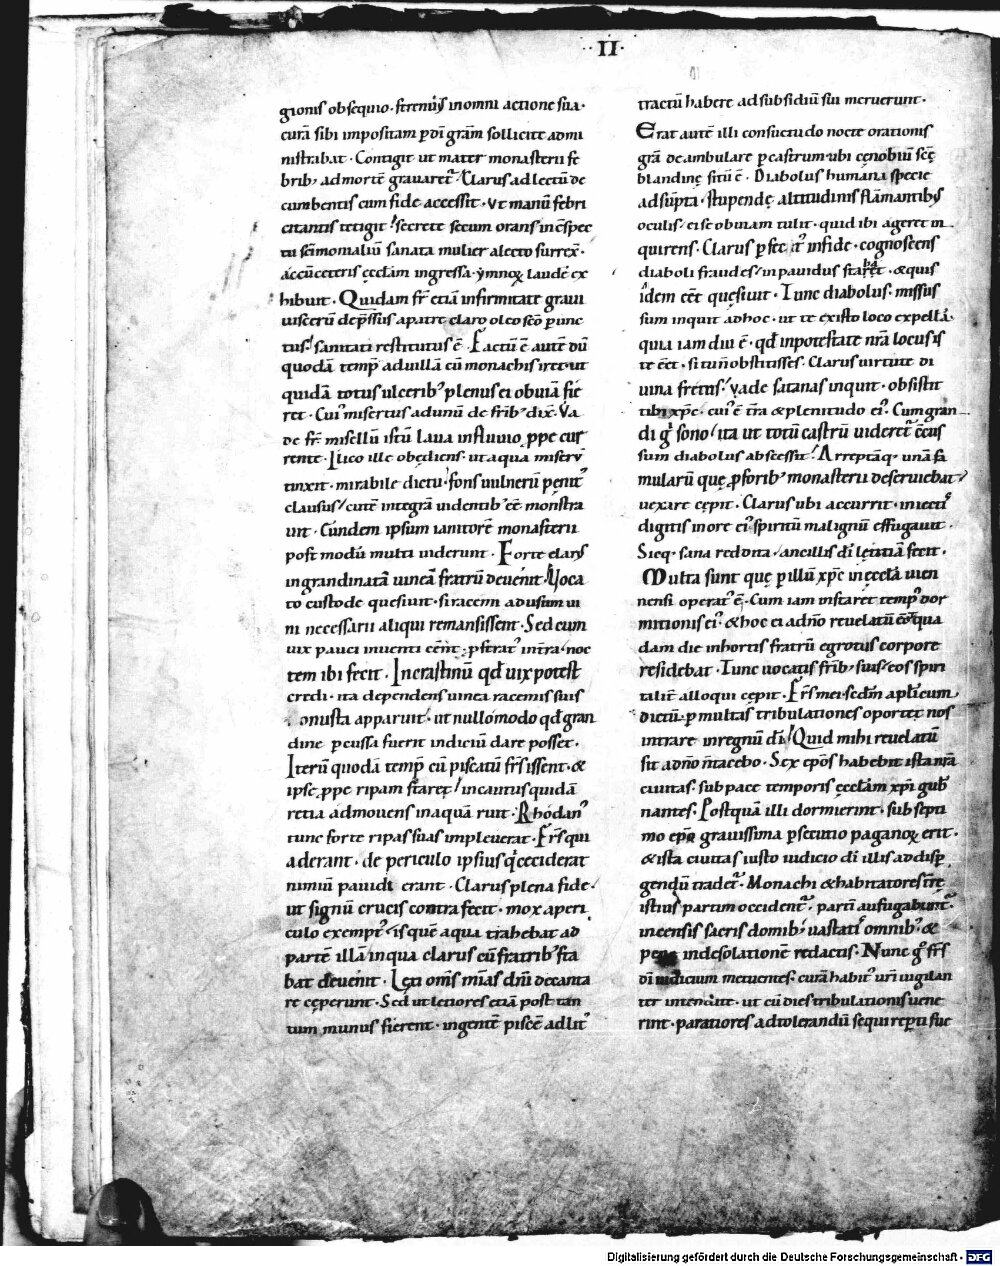 ·II·
gionis obsequio· strenuus in omni actione sua·
curā sibi impositam p dī grām sollicite admi
nistrabat· Contigit ut mater monasterii fe
brib; ad mortē grauaret᷑· Clarus ad lectū de
cumbentis cum fide accessit· Vt manū febri
citantis tetigit· secrete secum orans in c̄spec
tu sc̄imonialiū sanata mulier a lecto surrex̄·
ac cū ceteris ęcclam ingressa· ymnoꝝ laudē ex
hibuit· Quidam fr̄ etiā infirmitate graui
uiscerū dep̄ssus a patre claro oleo sc̄o punc
tus· sanitati restitutus ē· Factū ē autē dū
quodā temp̄ ad uillā cū monachis iret· ut
quidā totus ulcerib; plenus ei obuiā fie
ret· Cui᷒ misertus ad unū de frīb; dix̄· Va
de fr̄ misellū istū laua in fluuio ppe cur
rente· Ilico ille obediens· ut aqua miserū
tinxit· mirabile dictu· fons uulnerū penit᷒
clausus· cutē integrā uidentib; eē monstra
uit· Cundem ipsum ianitorē monasterii
post modū multi uiderunt· Forte clarus
in grandinatā uineā fratrū deuenit· Voca
to custode quesiuit· si racemi ad usum ui
ni necessarii aliqui remansissent· Sed cum
uix pauci inuenti eēnt· pstrat᷒ int̄ra· noc
tem ibi fecit· In crastinū qd̄ uix potest
credi· ita dependens uinea racemis suis
onusta apparuit· ut nullo modo qd̄ gran
dine pcussa fuerit indiciū dare posset·
Iterū quodā temp̄ cū piscatū fr̄s issent· &
ipse ppe ripam staret· incautus quidā
retia admouens in aquā ruit· Rhodan᷒
tunc forte ripas suas impleuerat· Fr̄s qui
aderant· de periculo ipsius q̇ ceciderat
nimiū pauidi erant· Clarus plena fide·
ut signū crucis contra fecit· mox a peri
culo exempt᷒· is quē aqua trahebat ad
partē illā in qua clarus cū fratrib; sta
bat deuenit· Lęti om̄s m̄ias dn̄i decanta
re cęperunt· Sed ut lętiores etiā post tan
tum munus fierent· ingentē piscē ad lit᷒
tractū habere ad subsidiū sui meruerunt·
Erat autē illi consuetudo nocte orationis
grā deambulare p castrum ubi cęnobiū sc̄ę
blandinę sitū ē· Diabolus humana specie
adsūpta· stupendę altitudinis flāmantib;
oculis· ei se obuiam tulit· quid ibi ageret in
quirens· Clarus pfect᷒ in fide· cognoscens
diaboli fraudes· inpauidus staret· & quis
idem eēt quęsiuit· Tunc diabolus· missus
sum inquit ad hoc· ut te ex isto loco expellā·
quia iam diu ē· qd̄ in potestate nr̄a locus is
te eēt· si tu nōn obstitisses· Clarus uirtute di
uina fretus· Vade satanas inquit· obsistit
tibi xp̄c· cui᷒ ē tr̄a & plenitudo ei᷒· Cum gran
di g° sono· ita ut totū castrū uideret᷑ eēcus
sum diabolus abscessit· Arreptāq; unā fa
mularū quę p forib; monasterii deseruiebat·
uexare cępit· Clarus ubi accurrit· iniectis
digitis in ore ei᷒ spiritū malignū effugauit·
Sicq; sana reddita· ancillis dī lętitiā fecit·
Multa sunt quę p illū xp̄c in ęcclā uien
nensi operat᷒ ē· Cum iam instaret temp᷒ dor
mitionis ei᷒· & hoc ei a dn̄o reuelatū eēt· qua
dam die in hortis fratrū egrotus corpore
residebat· Tunc uocatis frīb; suis· eos spiri
talit̄ alloqui cępit· Fr̄s mei· scd̄m aplicum
dictū· p multas tribulationes oportet nos
intrare in regnū dī· Quid mihi reuelatū
sit a dn̄o n̄ tacebo· Sex ep̄os habebit ista nr̄a
ciuitas· sub pace temporis ęcclam xp̄i gub̄
nantes· Postquā illi dormierint· sub septi
mo ep̄o grauissima psecutio paganoꝝ erit·
& ista ciuitas iusto iudicio dī illis ad disp̄
gendū tradet᷑· Monachi & habitatores tr̄ę
istius partim occident᷑· partī aufugabunt᷑·
incensis sacris domib; uastatis omnib;· &
pene in desolationē redactis· Nunc g° fr̄s
dī iudicium metuentes· curā habit᷒ ur̄i uigilan
ter intendite· ut cū dies tribulationis uene
rint· paratiores ad tolerandū sequi repti fue
Digitalisierung gefördert durch die Deutsche Forschungsgemeinschaft · DFG